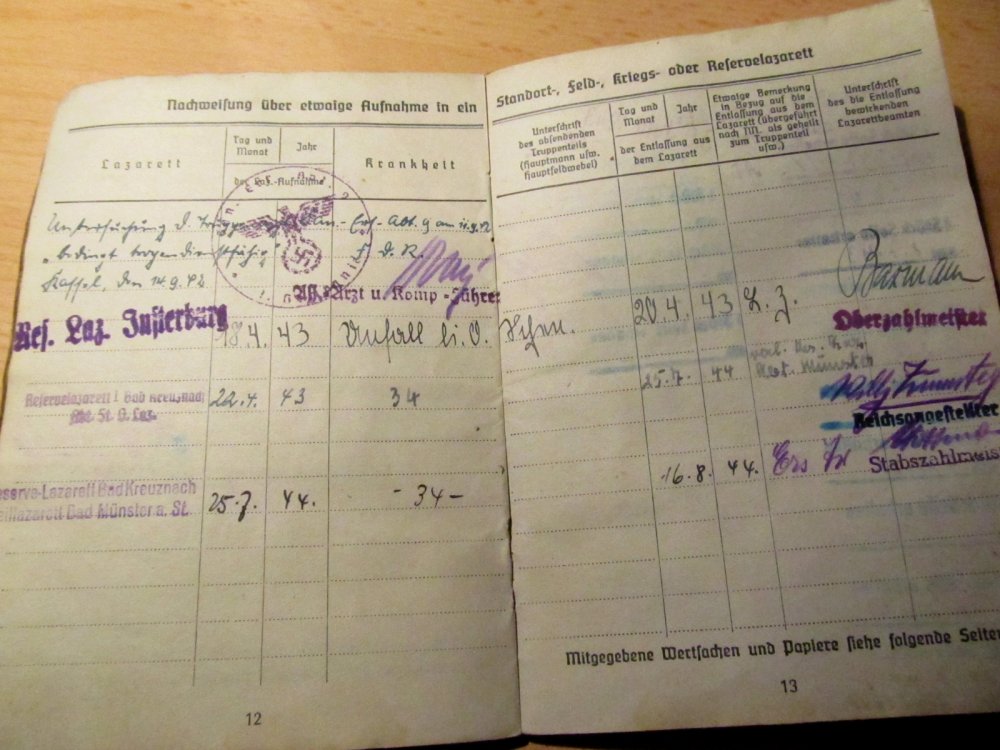 Nachweisung über etwaige Aufnahme in ein
Lazarett
Tag und Monat
Jahr
der Laz.-Aufnahme
Krankheit
Untersuchung d.
am 14.9.42
"bedingt tropendienstfähig"
F. d. R.
Kassel, den 14.9.42
Ass.-Arzt u. Komp.-Führer
Res. Laz. Insterburg 18.4. 43 Unfall li. O.
Reservelazarett I Bad Kreuznach 22.4. 43 34
Reserve-Lazarett Bad Kreuznach 25.7. 44. -34-
Teillazarett Bad Münster a. St.
12
Standort-, Feld-, Kriegs- oder Reservelazarett
Unterschrift
des absendenden
Truppenteils
(Hauptmann usw.
Hauptfeldwebel)
Tag und Monat
Jahr
der Entlassung aus
dem Lazarett
Etwaige Bemerkung
in Bezug auf die
Entlassung aus dem
Lazarett (übergeführt
nach NN. als geheilt
zum Truppenteil
usw.)
Unterschrift
des die Entlassung
bewirkenden
Lazarettbeamten
20.4. 43 L. Z. Baumann
Oberzahlmeister
25.7. 44 Münster
Reichsangestellter
16.8. 44. Ers Tr
Stabszahlmeis
Mitgegebene Wertsachen und Papiere siehe folgende Seiten
13